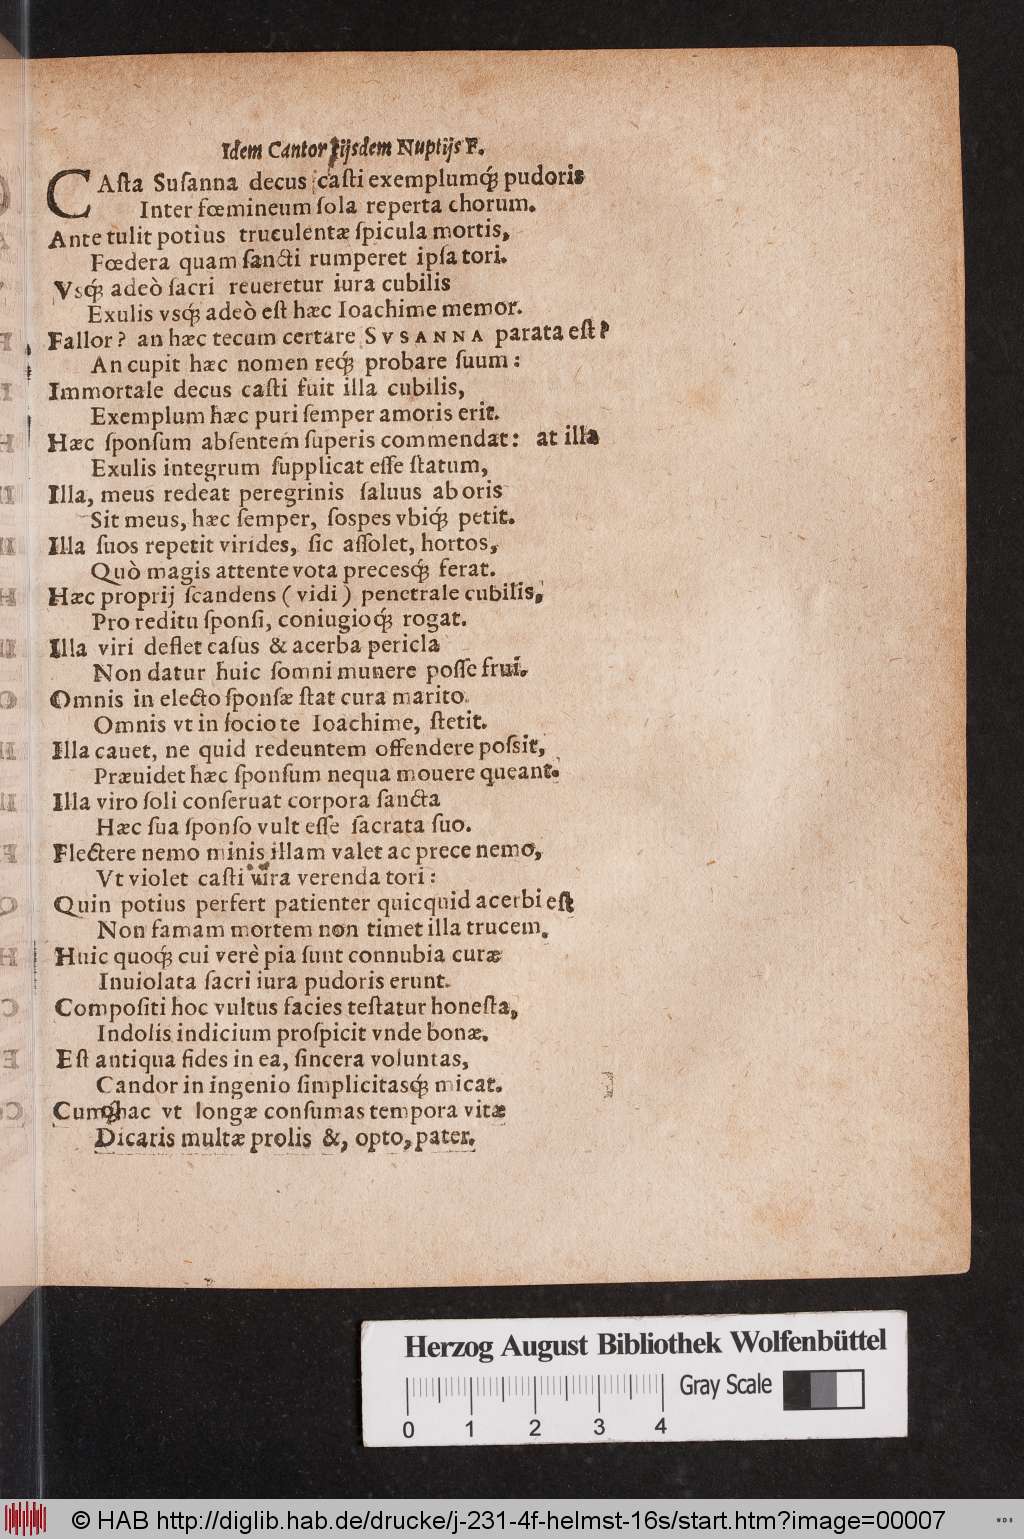 Idem Cantor ijsdem Nuptijs F.
CAſta Suſanna decus caſti exemplumq́ꝫ pudoris
Inter fœmineum ſola reperta chorum.
Ante tulit potius truculentæ ſpicula mortis,
Fœdera quam ſancti rumperet ipſa tori.
Vsq́ꝫ adeò ſacri reueretur iura cubilis
Exulis vsq́ꝫ adeò eſt hæc Ioachime memor.
Fallor? an hæc tecum certare SVSANNA parata eſt?
An cupit hæc nomen req́ꝫ probare ſuum:
Immortale decus caſti fuit illa cubilis,
Exemplum hæc puri ſemper amoris erit.
Hæc ſponſum abſentem ſuperis commendat: at illa
Exulis integrum ſupplicat eſſe ſtatum,
Illa, meus redeat peregrinis ſaluus ab oris
Sit meus, hæc ſemper, ſoſpes vbiq́ꝫ petit.
Illa ſuos repetit virides, ſic aſſolet, hortos,
Quò magis attente vota precesq́ꝫ ferat.
Hæc proprij ſcandens (vidi) penetrale cubilis,
Pro reditu ſponſi, coniugioq́ꝫ rogat.
Illa viri deflet caſus & acerba pericla
Non datur huic ſomni munere poſſe frui.
Omnis in electo ſponſæ ſtat cura marito.
Omnis vt in ſocio te Ioachime, ſtetit.
Illa cauet, ne quid redeuntem offendere poſsit,
Præuidet hæc ſponſum nequa mouere queant.
Illa viro ſoli conſeruat corpora ſancta
Hæc ſua ſponſo vult eſſe ſacrata ſuo.
Flectere nemo minis illam valet ac prece nemo,
Vt violet caſti iura verenda tori:
Quin potius perfert patienter quicquid acerbi eſt
Non famam mortem non timet illa trucem.
Huic quoq́ꝫ cui verè pia ſunt connubia curæ
Inuiolata ſacri iura pudoris erunt.
Compoſiti hoc vultus facies teſtatur honeſta,
Indolis indicium proſpicit vnde bonæ.
Eſt antiqua fides in ea, ſincera voluntas,
Candor in ingenio ſimplicitasq́ꝫ micat.
Cum hac vt longæ conſumas tempora vitæ
Dicaris multæ prolis &, opto, pater.
Herzog August Bibliothek Wolfenbüttel
Gray Scale
0 1 2 3 4
© HAB http://diglib.hab.de/drucke/j-231-4f-helmst-16s/start.htm?image=00007